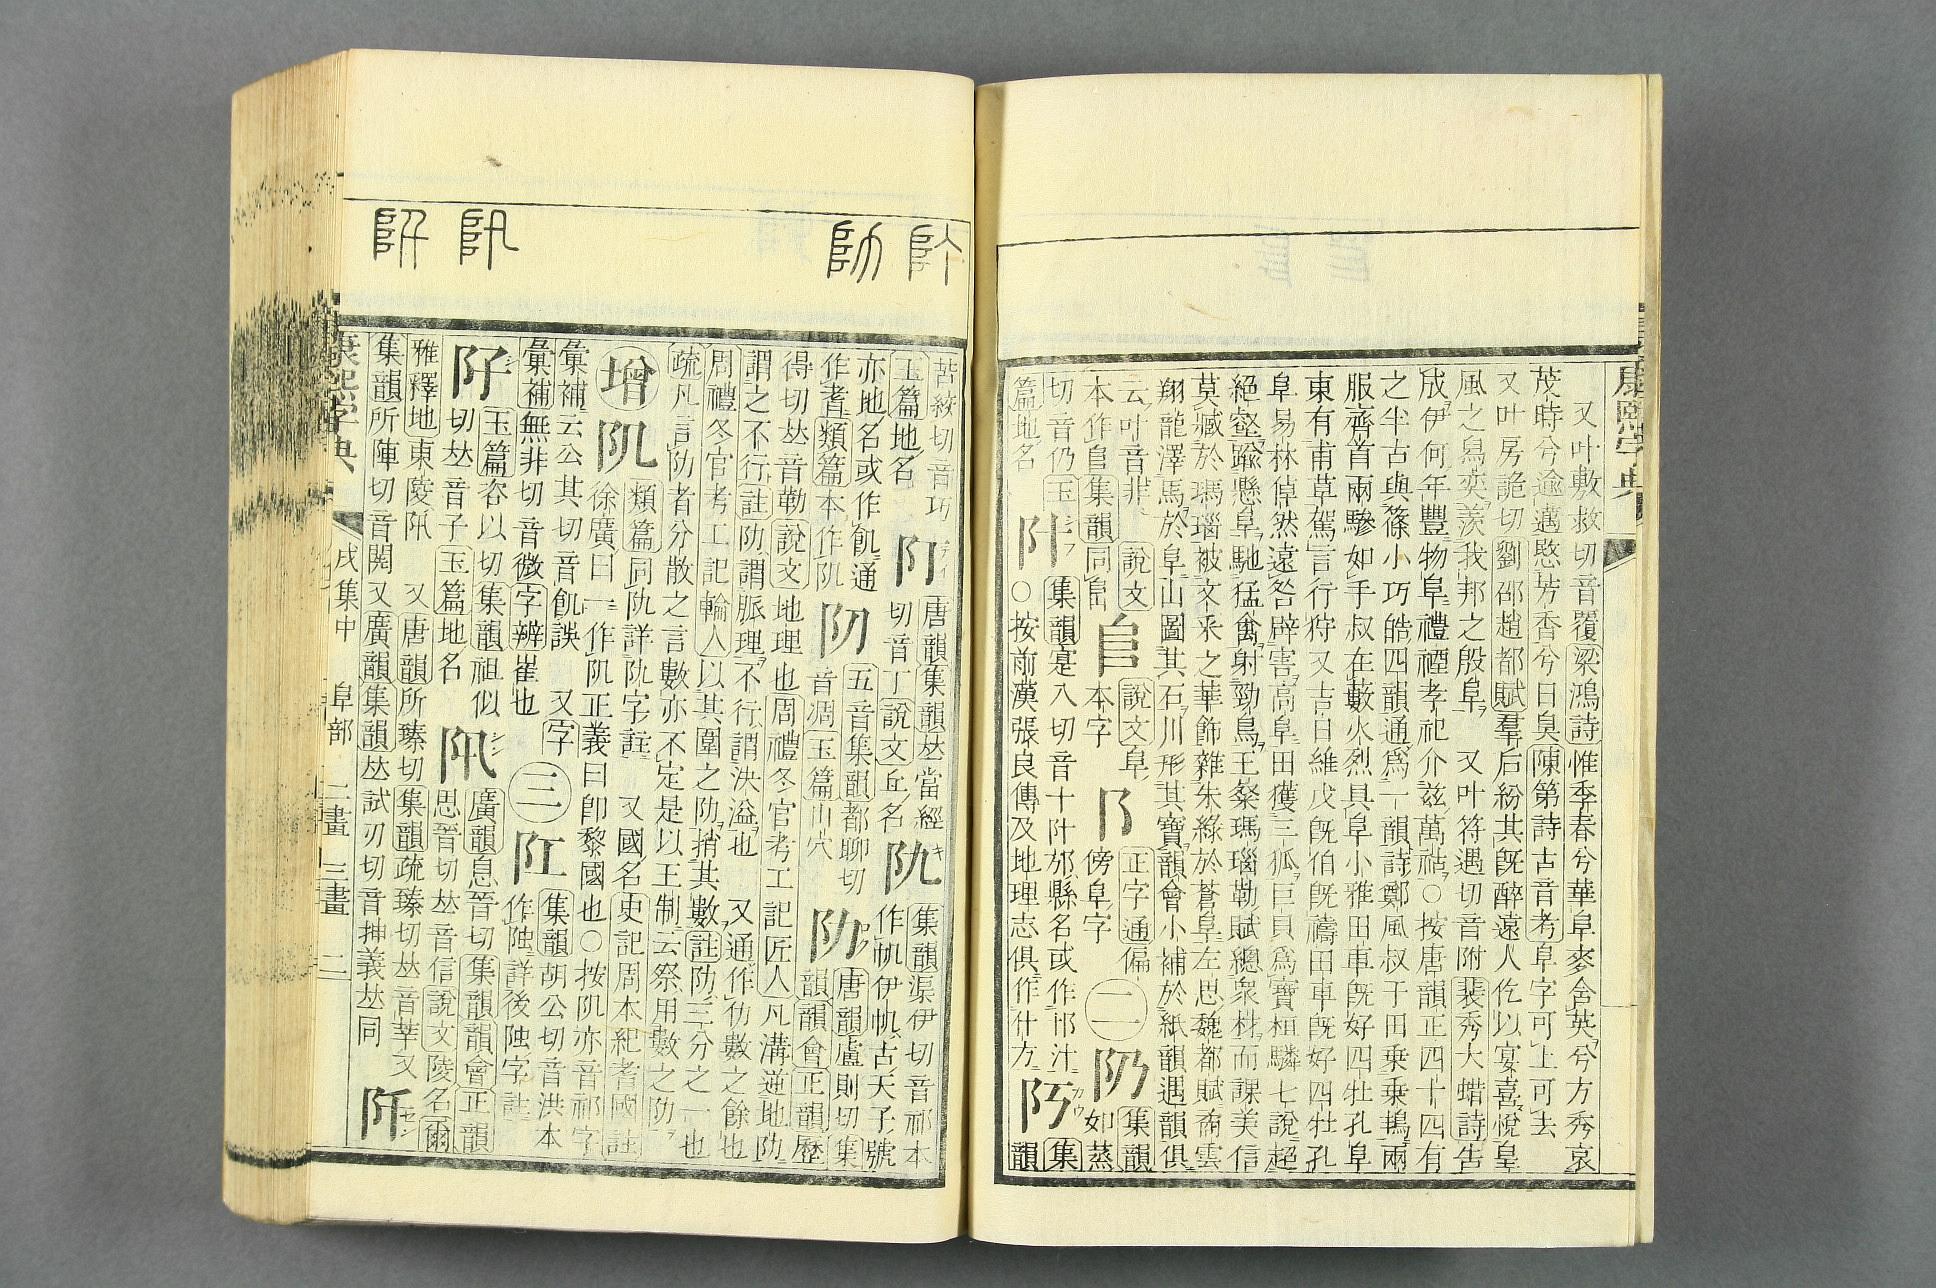 康熙字典
又叶敷救切音覆梁鴻詩惟季春兮華阜麥含英兮方秀哀
茂時兮逾邁愍芳香兮日臭陳第詩古音考阜字可上可去
又叶房詭切劉邵趙都賦羣后紛其旣醉遠人仡以宴喜悅皇
風之舃奕羨我邦之殷阜 又叶符遇切音附裴秀大蜡詩告
成伊何年豐物阜禮禋孝祀介茲萬祜○按唐韻正四十四有
之半古與篠小巧皓四韻通爲一韻詩鄭風叔于田乘乘鴇兩
服齊首兩驂如手叔在藪火烈具阜小雅田車旣好四牡孔阜
東有甫草駕言行狩又吉日維戊旣伯旣禱田車旣好四牡孔
阜易林倬然遠咎辟害高阜田獲三狐巨貝爲寶桓麟七說超
絕壑踰懸阜馳猛禽射勁鳥王粲瑪瑙勒賦總衆材而課美信
莫臧於瑪瑙被文采之華飾雜朱綠於蒼阜左思魏都賦矞雲
翔龍澤馬於阜山圖其石川形其寶韻會小補於紙韻遇韻俱
云叶音非 說文 𨸏 說文阜 阝 正字通偏 二 阞 集韻
本作𨸏集韻同𨸏 本字 傍阜字 如蒸
切音仍玉 阩 集韻寔入切音十阩邡縣名或作邟汁 阣 集
篇地名 ○按前漢張良傳及地理志俱作什方 韻
苦絞切音巧 阠 唐韻集韻𠀤當經 阢 集韻渠伊切音祁本
玉篇地名 切音丁說文丘名 作帆伊帆古天子號
亦地名或作飢通 阞 五音集韻都聊切 阞 唐韻盧則切集
作耆類篇本作阢 音凋玉篇山穴 韻韻會正韻歷
得切𠀤音勒說文地理也周禮冬官考工記匠人凡溝逆地阞
謂之不行註阞謂脈理不行謂決溢也 又通作仂數之餘也
周禮冬官考工記輪人以其圍之阞捎其數註阞三分之一也
疏凡言阞者分散之言數亦不定是以王制云祭用數之阞
增 阢 類篇同阢詳阢字註 又國名史記周本紀耆國註
徐廣曰一作阢正義曰卽黎國也○按阢亦音祁字
彙補云公其切音飢誤 又字 三 阷 集韻胡公切音洪本
彙補無非切音微字辨崔也 作䧆詳後䧆字註
阡 玉篇咨以切集韻祖似 阠 廣韻息晉切集韻韻會正韻
切𠀤音子玉篇地名 思晉切𠀤音信說文陵名爾
雅釋地東陵阠 又唐韻所臻切集韻疏臻切𠀤音莘又
集韻所陣切音闋又廣韻集韻𠀤試刃切音抻義𠀤同 阡
康熙字典 戌集中 阜部 二畫 三畫 二